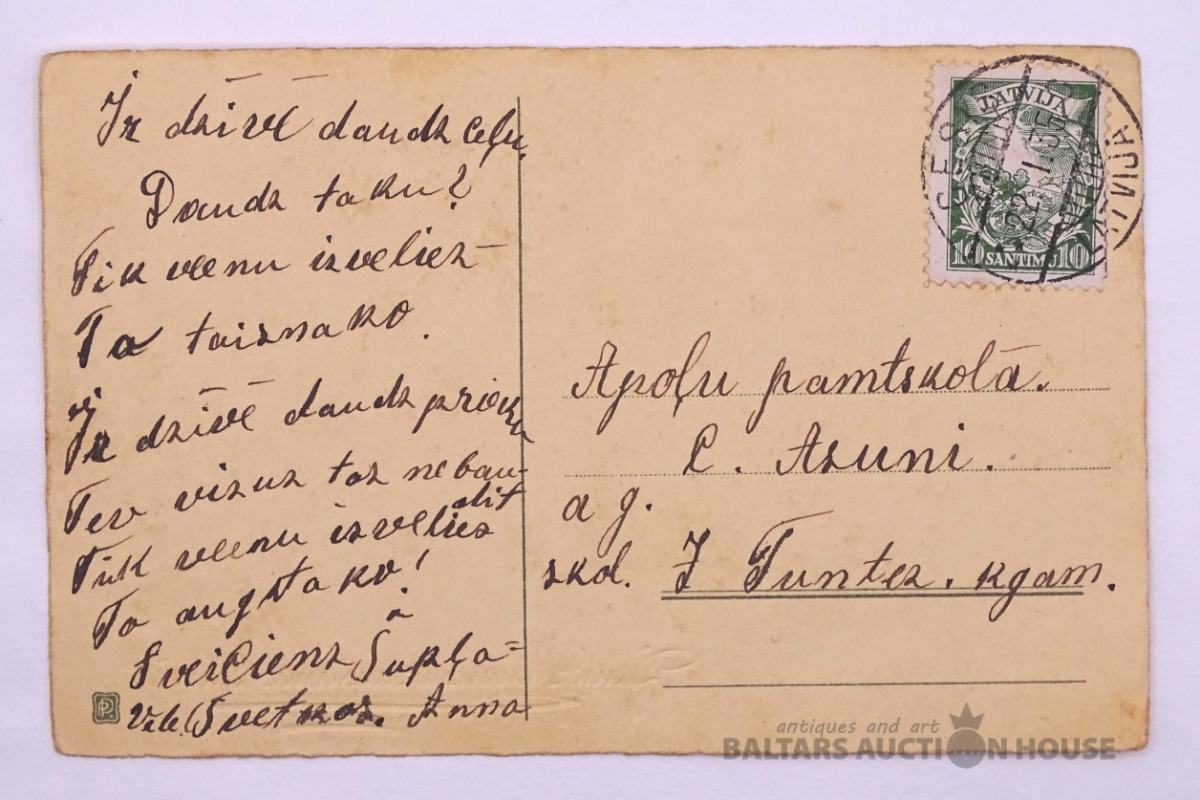 Ir dzīvē daudz ceļu,
Daudz taku?
Tik veenu izvelies
To taisnako.
Ir dzīvē daudz prieku
Tev visus tos nebau-
dit
Tik veenu izvelies
To augstako!
Sveiciens
Anna
LATVIJA
10 SANTIMU 10
Apoļu pamtskolā.
c. Asuni.
a g.
skol. J Tuntes. kgam.
antiques and art
BALTARS AUCTION HOUSE